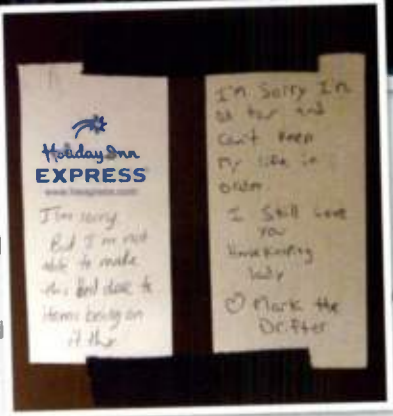 Holiday Inn
EXPRESS
www.hiexpress.com
I'm sorry
But I'm not
able to make
this bed due to
items being on
it thx
I'm Sorry I'm
so far and
can't keep
my life in
order.
I Still Love
you
Housekeeping
lady
♡ Mark the
Drifter